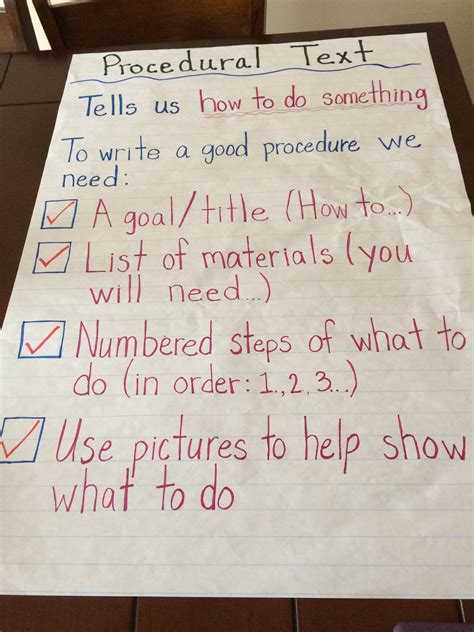 Procedural Text
Tells us how to do something
To write a good procedure we
need:
A goal/title (How to...)
List of materials (you
will need...)
Numbered steps of what to
do (in order: 1.,2,3...)
Use pictures to help show
what to do